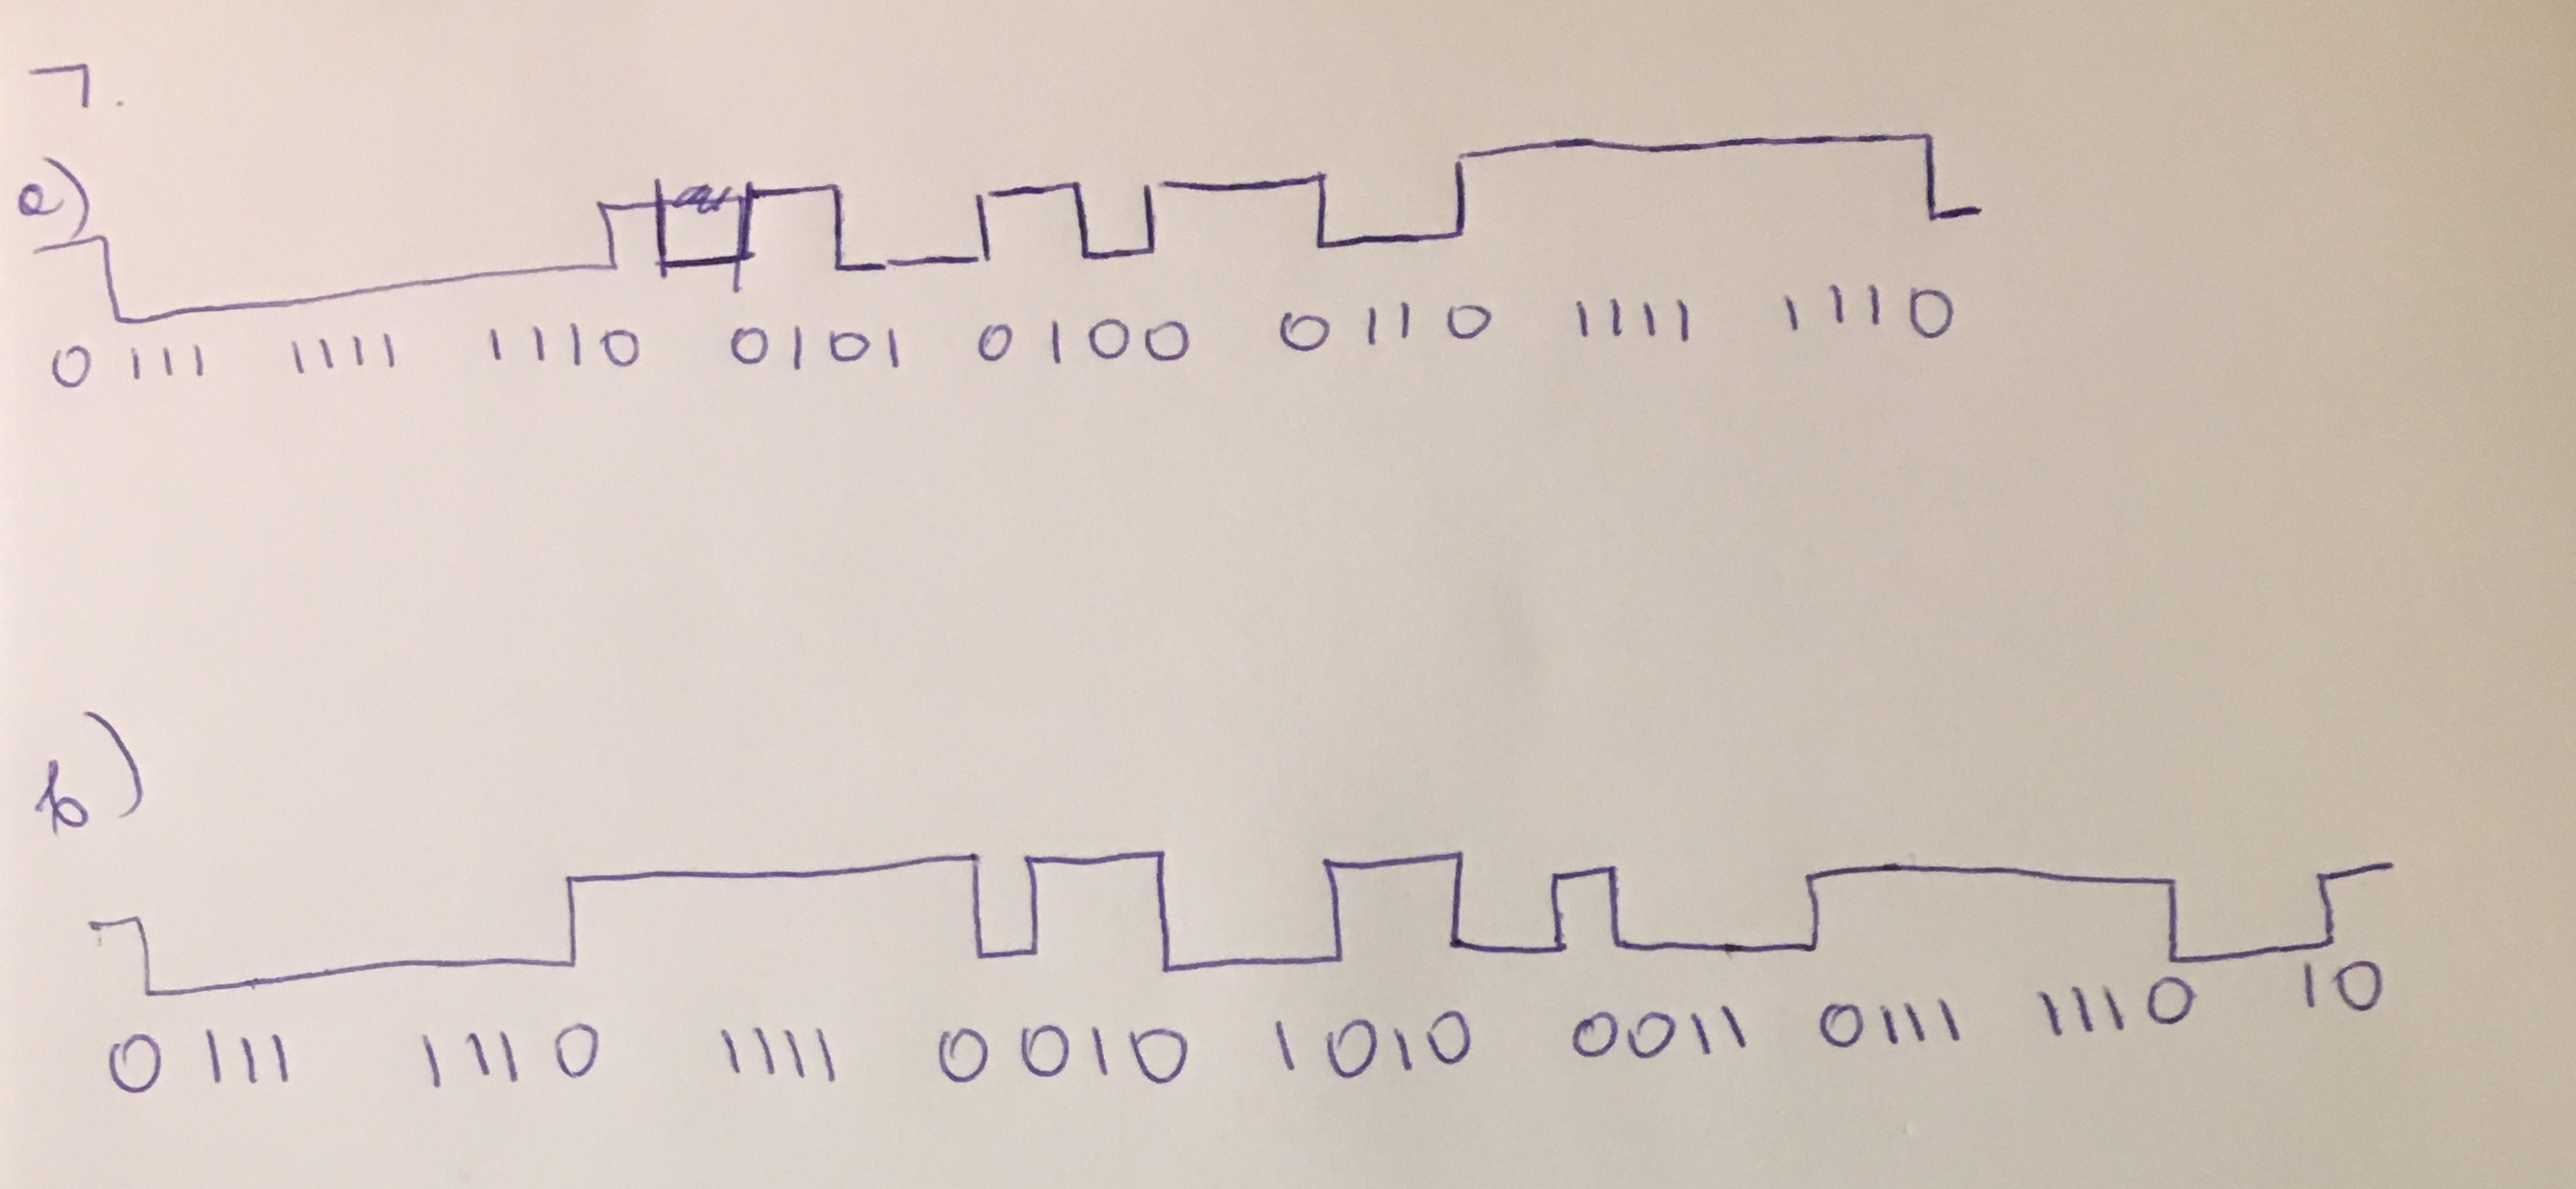 7.
a)
0111 1111 1110 0101 0100 0110 1111 1110
b)
0111 1110 1111 0010 1010 0011 0111 1110 10